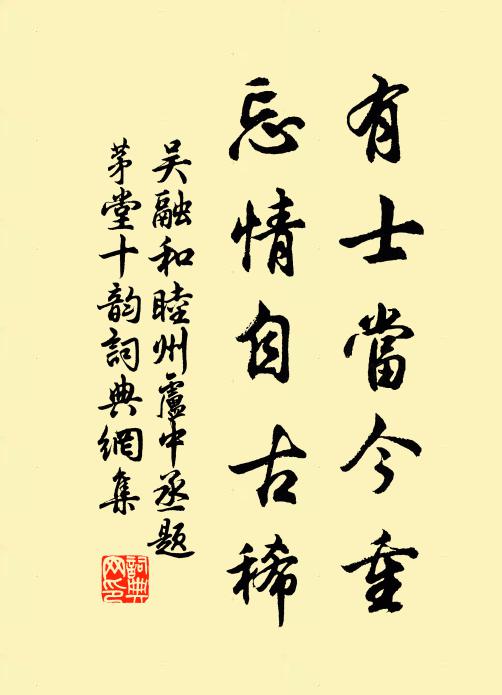 有士當今重
忘情自古稀
吴融和睦州盧中丞題
茅堂十韵詞典網集
詞典网印